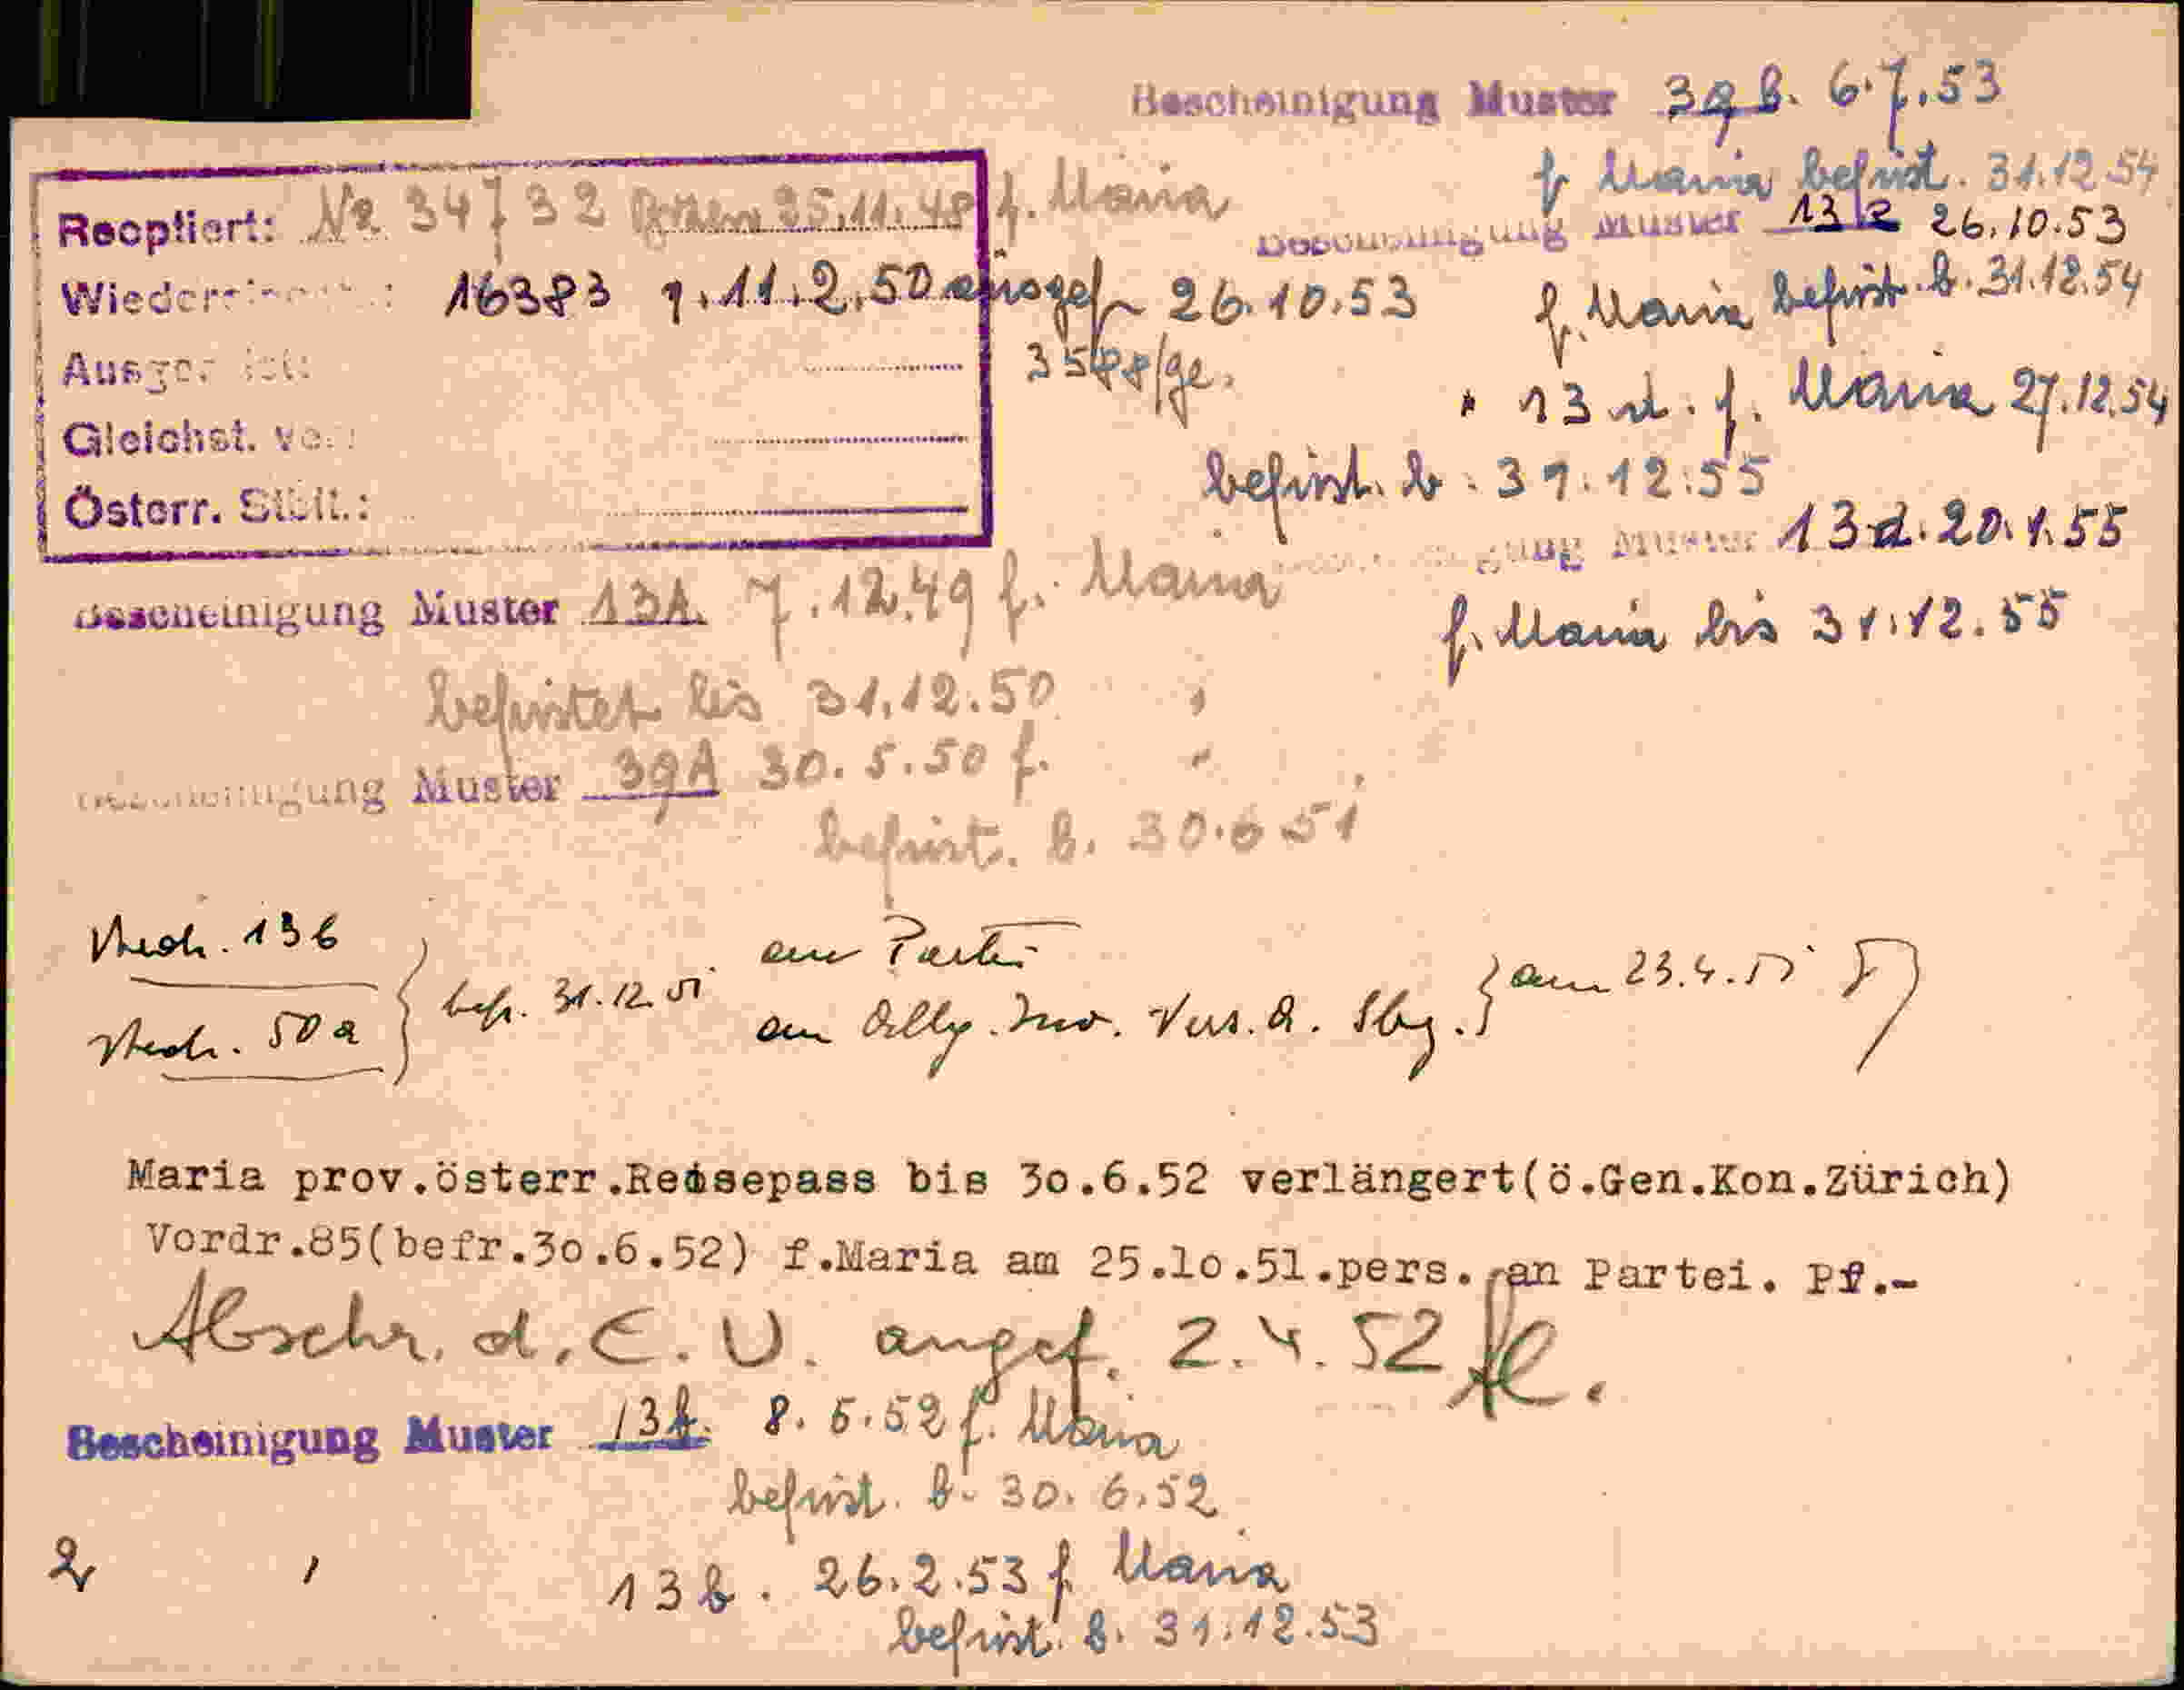 Bescheinigung Muster 39 B. 6.7.53
f. Maria befrist. 31.12.54
Reoptiert: Nr. 34732 Bozen 25.11.48 f. Maria
Bescheinigung Muster 13 26.10.53
16383 11.2.50 26.10.53
f. Maria befrist. b. 31.12.54
" 13 d. f. Maria 27.12.54
Gleichst.
befrist. b. 31.12.55
Österr.
Muster 13 d. 20.1.55
Bescheinigung Muster 13 A. 7.12.49 f. Maria
f. Maria bis 31.12.55
befristet bis 31.12.50 "
Bescheinigung Muster 39A 30.5.50 f. "
befrist. b. 30.6.51
136 an Partei
50 a befr. 31.12.51 an Allg. Inv. Vers. A. Sbg. } am 23.4.51
Maria prov.österr.Reisepass bis 3o.6.52 verlängert(ö.Gen.Kon.Zürich)
Vordr.85(befr.3o.6.52) f.Maria am 25.lo.51.pers. an Partei. Pf.-
Abschr. d. E. U. angef. 2.4.52
Bescheinigung Muster 13 b. 8.5.52 f. Maria
befrist. b. 30.6.52
" 13 b. 26.2.53 f. Maria
befrist. b. 31.12.53